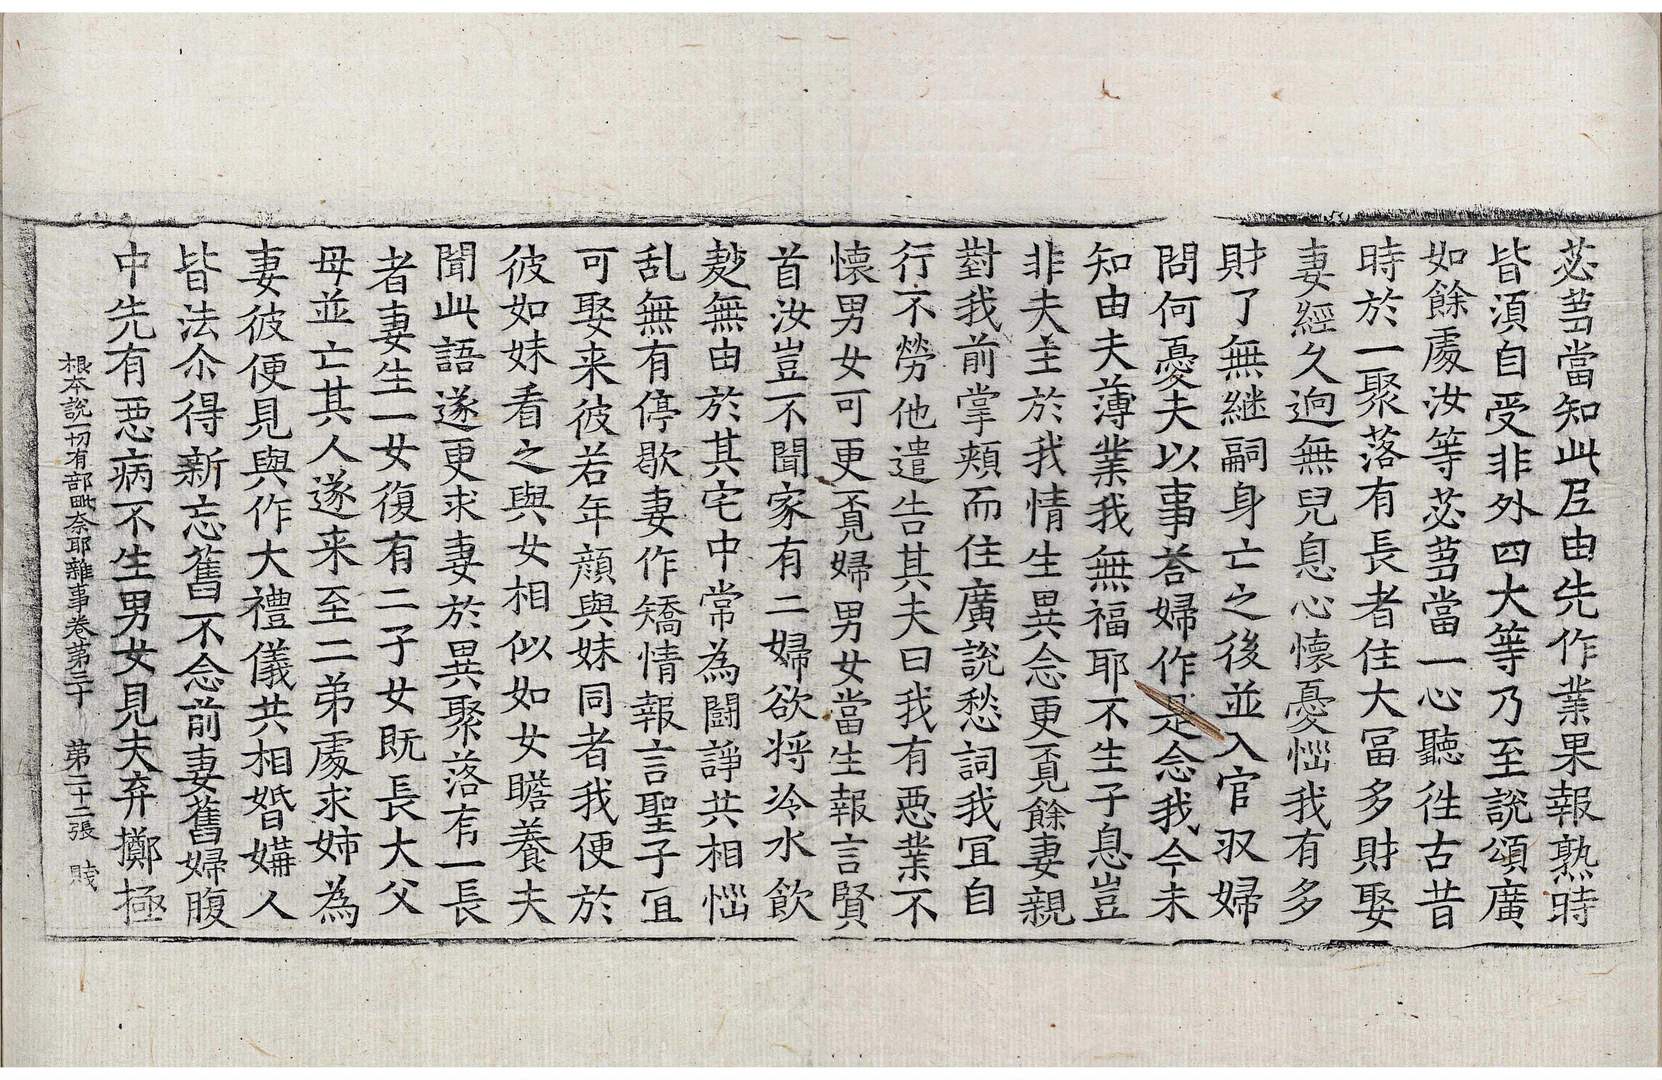 苾芻當知此尼由先作業果報熟時
皆湏自受非外四大等乃至說頌廣
如餘處汝等苾芻當一心聽徃古昔
時於一聚落有長者住大冨多財娶
妻經久逈無兒息心懷憂惱我有多
財了無継嗣身亡之後並入官収婦
問何憂夫以事荅婦作是念我今未
知由夫薄業我無福耶不生子息豈
非夫主於我情生異念更覔餘妻親
對我前掌頰而住廣說愁詞我冝自
行不勞他遣告其夫曰我有惡業不
懷男女可更覔婦男女當生報言賢
首汝豈不聞家有二婦欲将冷水飲
麨無由於其宅中常為鬪諍共相惱
乱無有停歇妻作矯情報言聖子冝
可娶来彼若年顔與妹同者我便於
彼如妹看之與女相似如女瞻養夫
聞此語遂更求妻於異聚落有一長
者妻生一女復有二子女既長大父
母並亡其人遂来至二弟處求姊為
妻彼便見與作大禮儀共相婚媾人
皆法尒得新忘舊不念前妻舊婦腹
中先有惡病不生男女見夫弃擲極
根本說一切有部毗奈耶雜事卷第三十 第二十二張